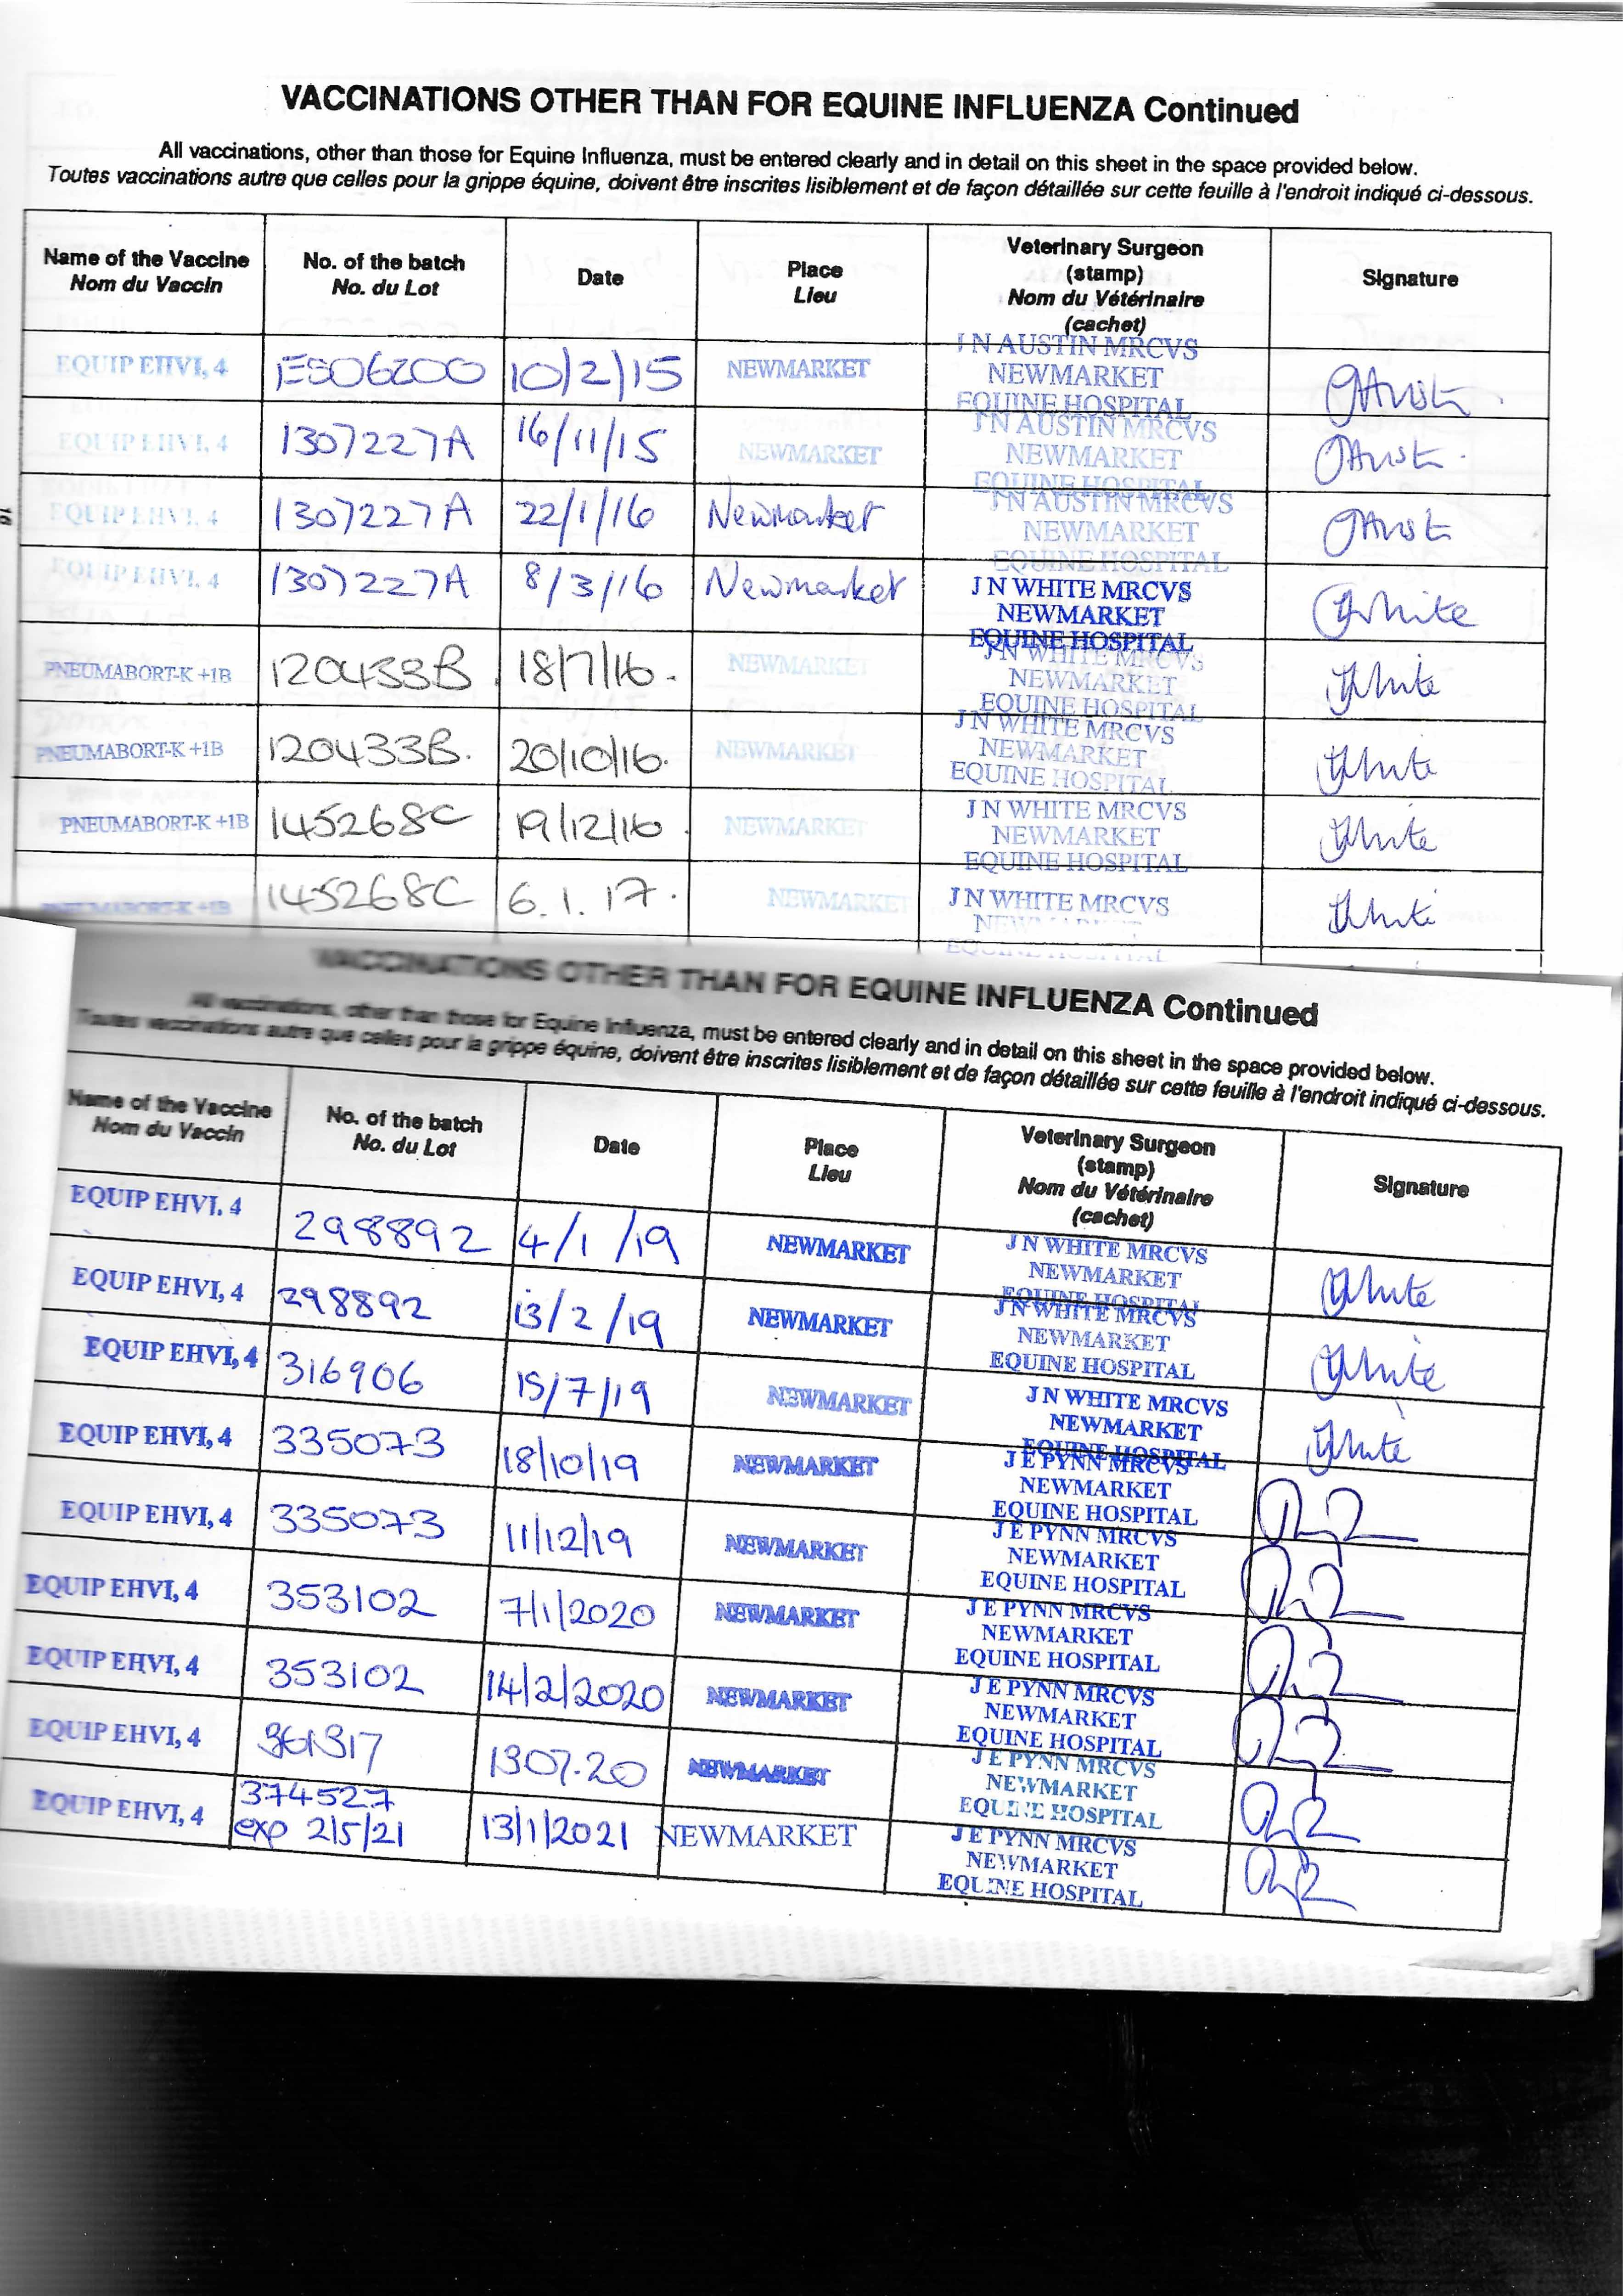 VACCINATIONS OTHER THAN FOR EQUINE INFLUENZA Continued
All vaccinations, other than those for Equine Influenza, must be entered clearly and in detail on this sheet in the space provided below.
Toutes vaccinations autre que celles pour la grippe équine, doivent être inscrites lisiblement et de façon détaillée sur cette feuille à l'endroit indiqué ci-dessous.
Name of the Vaccine
Nom du Vaccin
No. of the batch
No. du Lot
Date
Place
Lieu
Veterinary Surgeon
(stamp)
Nom du Vétérinaire
(cachet)
Signature
EQUIP EHVI, 4 10/2/15 NEWMARKET
J N AUSTIN MRCVS
NEWMARKET
EQUINE HOSPITAL
EQUIP EHVI, 4 1307227A 16/11/15 NEWMARKET
J N AUSTIN MRCVS
NEWMARKET
EQUINE HOSPITAL
EQUIP EHVI, 4 1307227A 22/1/16 Newmarket
J N AUSTIN MRCVS
NEWMARKET
EQUINE HOSPITAL
EQUIP EHVI, 4 1307227A 8/3/16 Newmarket
J N WHITE MRCVS
NEWMARKET
EQUINE HOSPITAL
White
PNEUMABORT-K +1B 120433B 18/7/16. NEWMARKET
J N WHITE MRCVS
NEWMARKET
EQUINE HOSPITAL
White
PNEUMABORT-K +1B 120433B. 20/10/16. NEWMARKET
J N WHITE MRCVS
NEWMARKET
EQUINE HOSPITAL
White
PNEUMABORT-K +1B 145268C 19/12/16. NEWMARKET
J N WHITE MRCVS
NEWMARKET
EQUINE HOSPITAL
White
PNEUMABORT-K +1B 145268C 6.1.17. NEWMARKET
J N WHITE MRCVS
NEWMARKET
EQUINE HOSPITAL
White
VACCINATIONS OTHER THAN FOR EQUINE INFLUENZA Continued
All vaccinations, other than those for Equine Influenza, must be entered clearly and in detail on this sheet in the space provided below.
Toutes vaccinations autre que celles pour la grippe équine, doivent être inscrites lisiblement et de façon détaillée sur cette feuille à l'endroit indiqué ci-dessous.
Name of the Vaccine
Nom du Vaccin
No. of the batch
No. du Lot
Date
Place
Lieu
Veterinary Surgeon
(stamp)
Nom du Vétérinaire
(cachet)
Signature
EQUIP EHVI, 4 298892 4/1/19 NEWMARKET
J N WHITE MRCVS
NEWMARKET
EQUINE HOSPITAL
White
EQUIP EHVI, 4 298892 13/2/19 NEWMARKET
J N WHITE MRCVS
NEWMARKET
EQUINE HOSPITAL
White
EQUIP EHVI, 4 316906 15/7/19 NEWMARKET
J N WHITE MRCVS
NEWMARKET
EQUINE HOSPITAL
White
EQUIP EHVI, 4 335073 18/10/19 NEWMARKET
J E PYNN MRCVS
NEWMARKET
EQUINE HOSPITAL
EQUIP EHVI, 4 335073 11/12/19 NEWMARKET
J E PYNN MRCVS
NEWMARKET
EQUINE HOSPITAL
EQUIP EHVI, 4 353102 7/1/2020 NEWMARKET
J E PYNN MRCVS
NEWMARKET
EQUINE HOSPITAL
EQUIP EHVI, 4 353102 14/2/2020 NEWMARKET
J E PYNN MRCVS
NEWMARKET
EQUINE HOSPITAL
EQUIP EHVI, 4 361317 1307.20 NEWMARKET
J E PYNN MRCVS
NEWMARKET
EQUINE HOSPITAL
EQUIP EHVI, 4 374527
exp 2/5/21 13/1/2021 NEWMARKET
J E PYNN MRCVS
NEWMARKET
EQUINE HOSPITAL